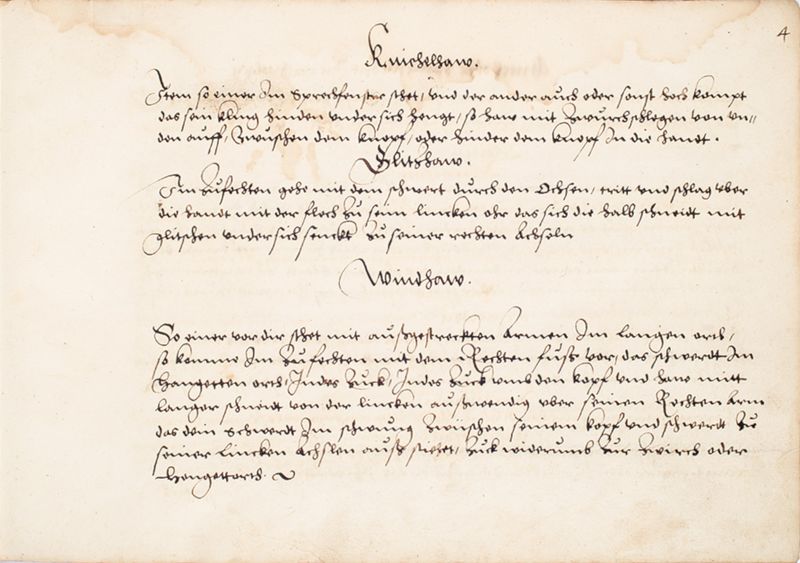 4
Knichelhaw.
Item so einer Im Sprechfenster stehet, vnd der ander auch oder sonst hoch kompt
das sein kling hinden vndersich hengt, so haw mit Zwürchschlegen von vn=
den auff, Zwüschen dem knopf, oder hinder dem knopf In die handt.
Glitzhaw.
Im Zufechten gehe mit dem schwert durch den Ochsen, tritt vnd schlag vber
die handt mit der flech zu seim lincken ohr das sich die halb schneidt mit
glitschen vndersich senckt zu seiner rechten Achseln
Windthaw.
So einer vor dir stehet mit außgestreckten Armen Im langen orth,
so komme Im Zufechten mit dem Rechten fuß vor, das schwerdt Im
Hangetten orth, Indes Zuck, Indes Zuck vmb den kopf vnd haw mitt
langer schneidt von der lincken außwendig vber seinen Rechten Arm
das dein Schwerdt Im schwung Zwischen seinem kopf vnd schwerdt zu
seiner lincken Achslen auß stehet, Zuck widerumb zur Zwirch oder
Hangettorth.